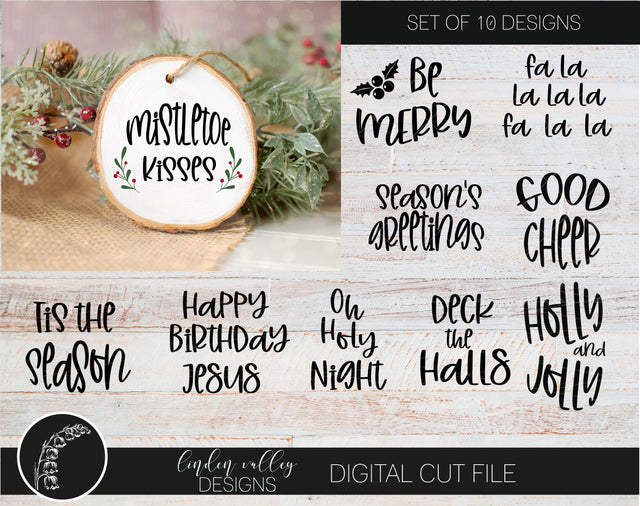 SET OF 10 DESIGNS
mistletoe
kisses
Be
MERRY
fa la
la la la
fa la la
season's
greetings
GOOD
CHEER
Tis the
season
Happy
BirthDay
Jesus
Oh
Holy
Night
Deck
the
Halls
Holly
and
Jolly
linden valley
DESIGNS
DIGITAL CUT FILE